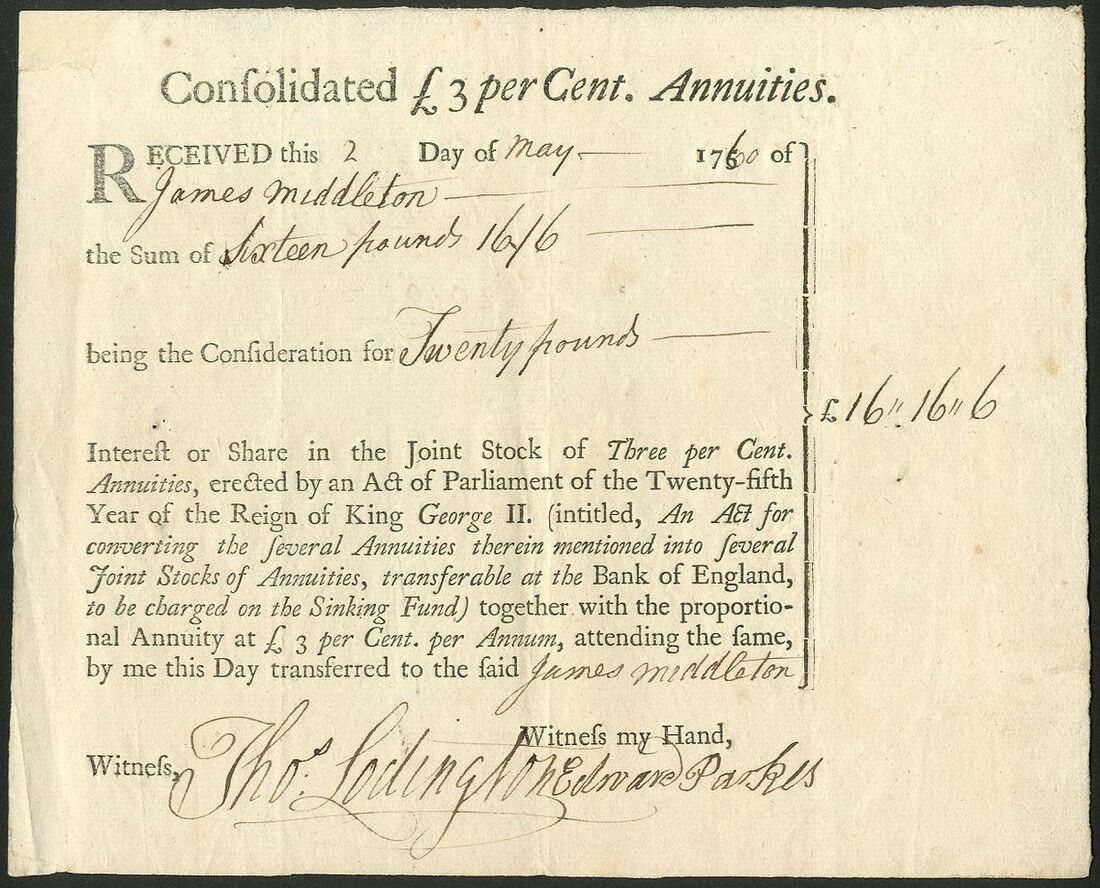 Conſolidated £ 3 per Cent. Annuities.
RECEIVED this 2 Day of May 1760 of
James Middleton
the Sum of Sixteen pounds 16/6
being the Conſideration for Twenty pounds
£ 16 " 16 " 6
Intereſt or Share in the Joint Stock of Three per Cent.
Annuities, erected by an Act of Parliament of the Twenty-fifth
Year of the Reign of King George II. (intitled, An Act for
converting the ſeveral Annuities therein mentioned into ſeveral
Joint Stocks of Annuities, transferable at the Bank of England,
to be charged on the Sinking Fund) together with the proportio-
nal Annuity at £ 3 per Cent. per Annum, attending the ſame,
by me this Day transferred to the ſaid James Middleton
Witneſs my Hand,
Witneſs, Thos. Lodington Edward Parkes